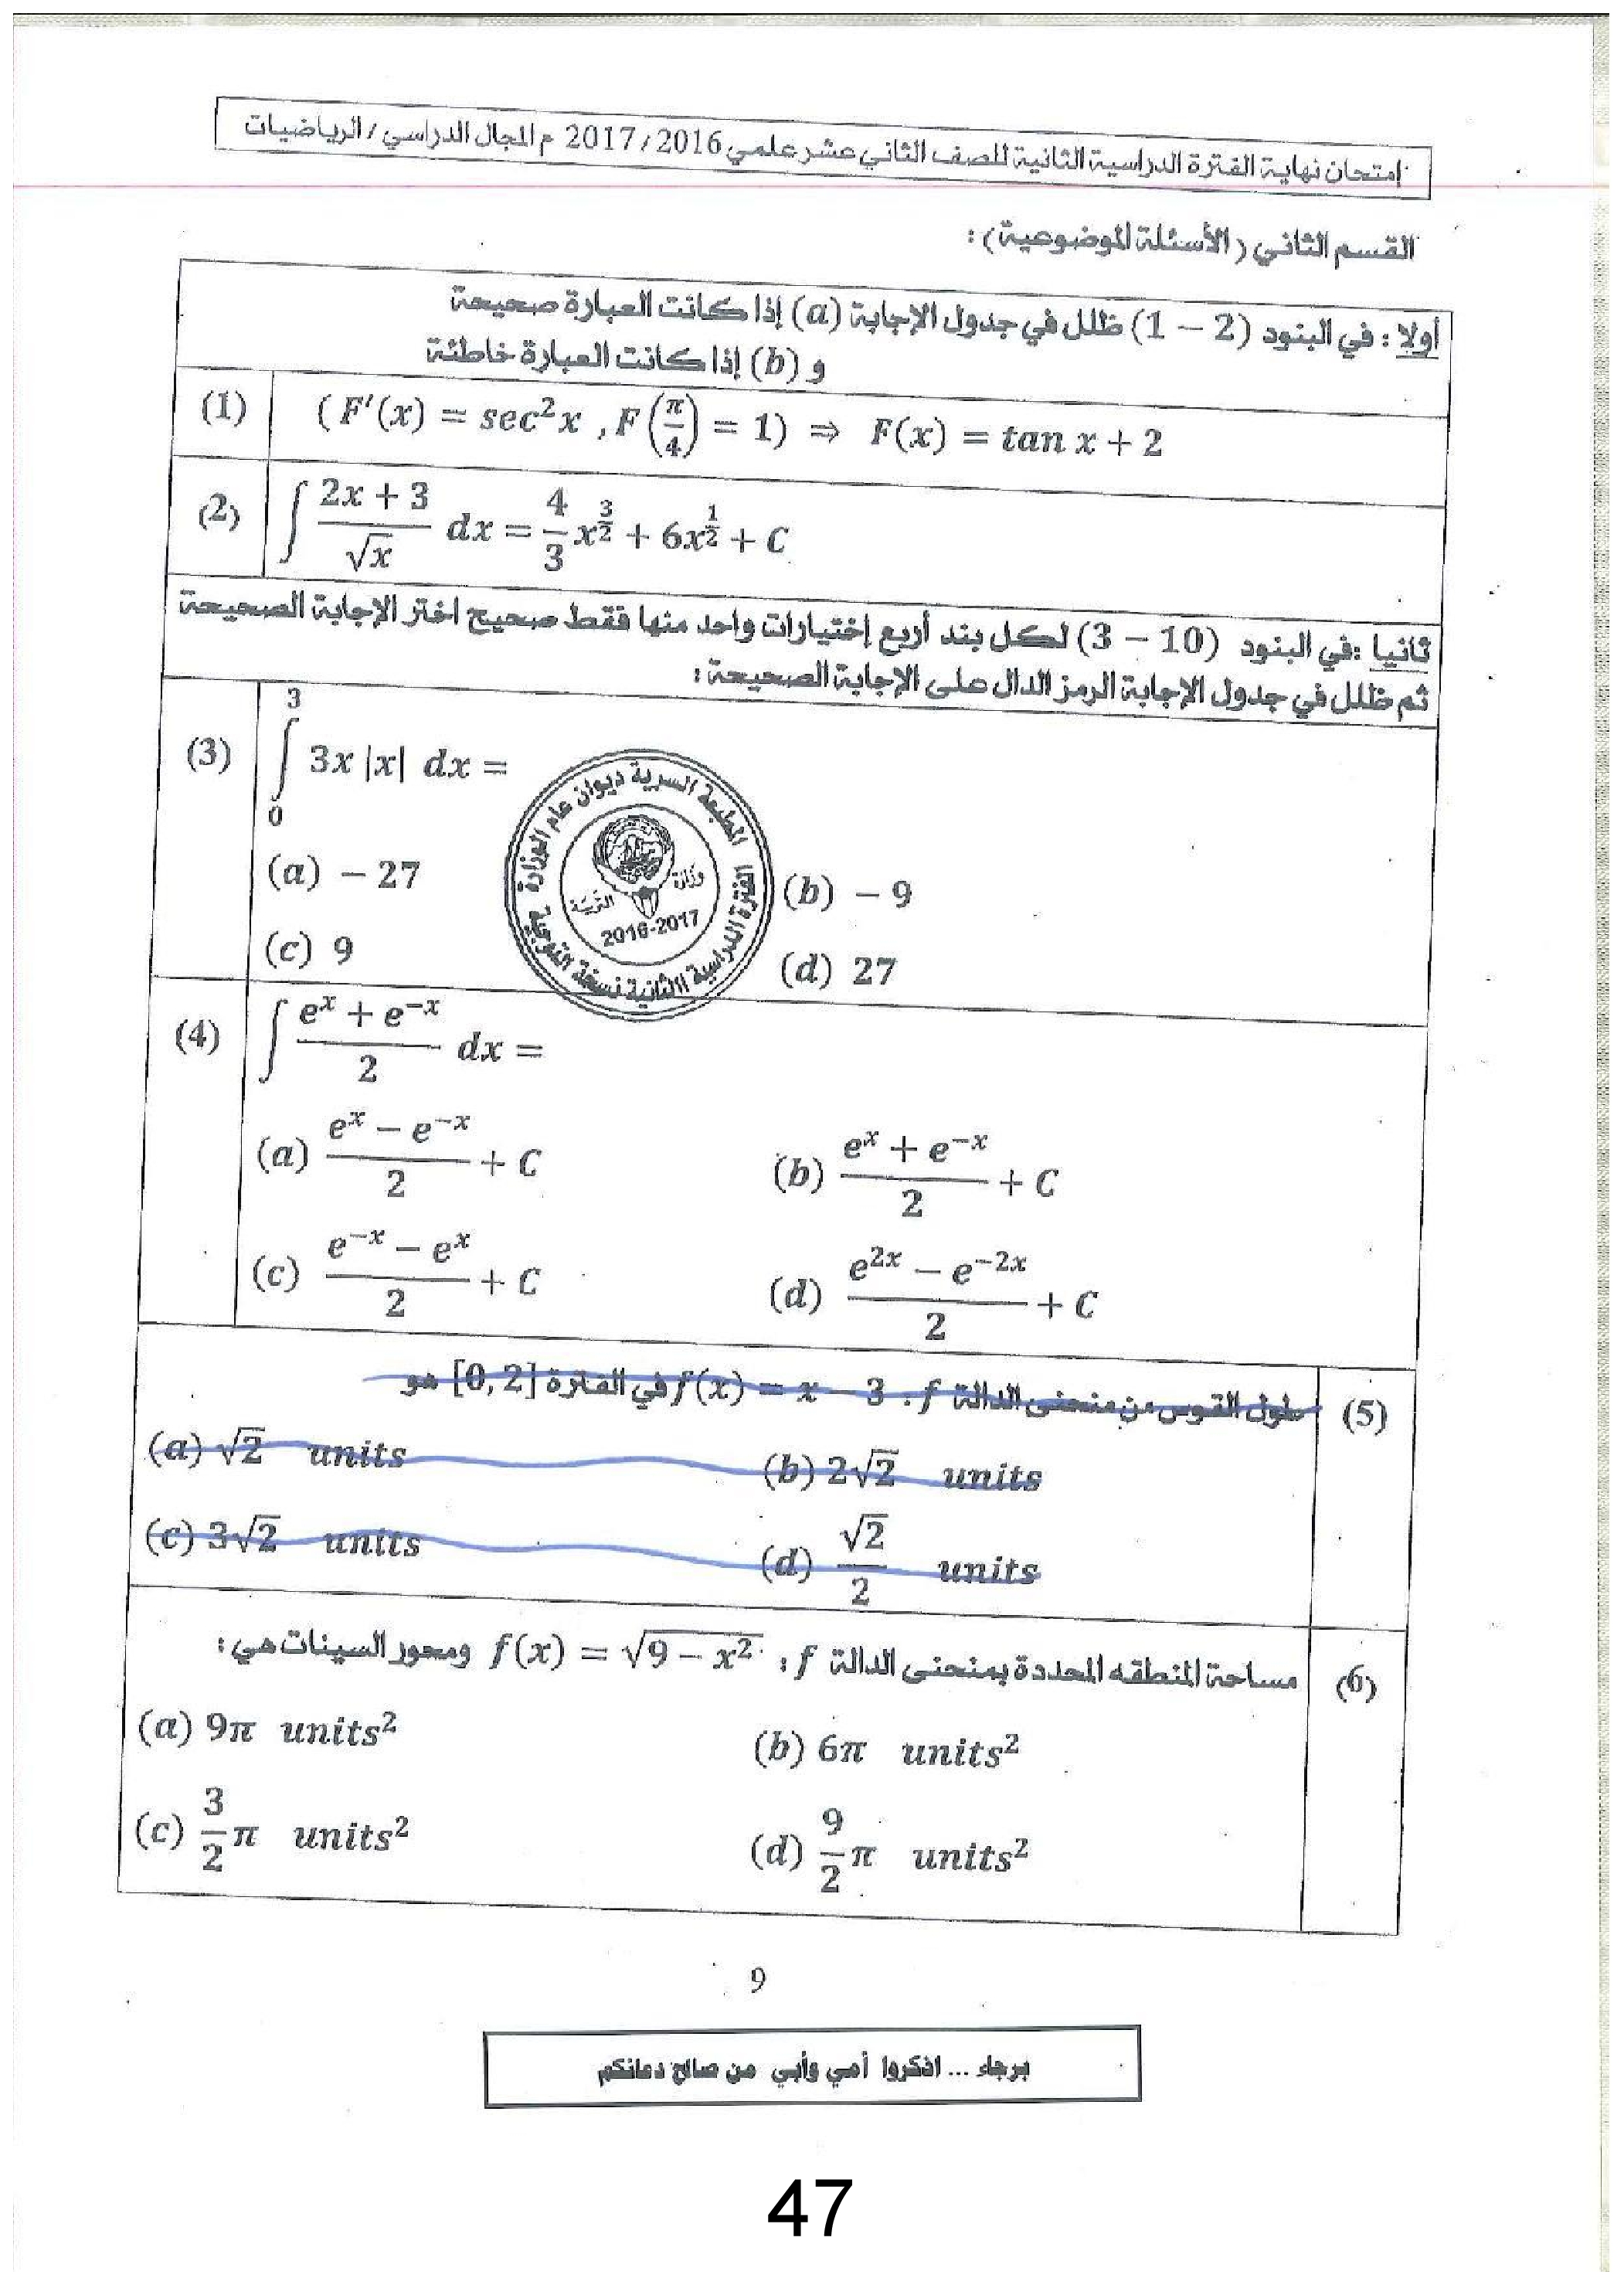 إمتحان نهاية الفترة الدراسية الثانية للصف الثاني عشر علمي 2017/2016 م المجال الدراسي / الرياضيات
القسم الثاني ( الأسئلة الموضوعية ) :
أولا : في البنود (1 – 2) ظلل في جدول الإجابة (a) إذا كانت العبارة صحيحة
و (b) إذا كانت العبارة خاطئة
(1) ( F'(x) = sec²x , F(π/4) = 1) ⇒ F(x) = tan x + 2
(2) ∫ (2x + 3)/√x dx = 4/3 x^(3/2) + 6x^(1/2) + C
ثانيا : في البنود (3 – 10) لكل بند أربع إختيارات واحد منها فقط صحيح اختر الإجابة الصحيحة
ثم ظلل في جدول الإجابة الرمز الدال على الإجابة الصحيحة :
(3) ∫₀³ 3x |x| dx =
(a) – 27 (b) – 9
(c) 9 (d) 27
المطبعة السرية ديوان عام الوزارة
الفترة الدراسية الثانية نسخة التوجية
وزارة التربية
2016-2017
(4) ∫ (eˣ + e⁻ˣ)/2 dx =
(a) (eˣ – e⁻ˣ)/2 + C (b) (eˣ + e⁻ˣ)/2 + C
(c) (e⁻ˣ – eˣ)/2 + C (d) (e²ˣ – e⁻²ˣ)/2 + C
(5) طول القوس من منحنى الدالة f : f(x) = x – 3 في الفترة [0, 2] هو
(a) √2 units (b) 2√2 units
(c) 3√2 units (d) √2/2 units
(6) مساحة المنطقه المحددة بمنحنى الدالة f : f(x) = √(9 – x²) ومحور السينات هي :
(a) 9π units² (b) 6π units²
(c) 3/2 π units² (d) 9/2 π units²
9
برجاء ... اذكروا أمي وأبي من صالح دعائكم
47